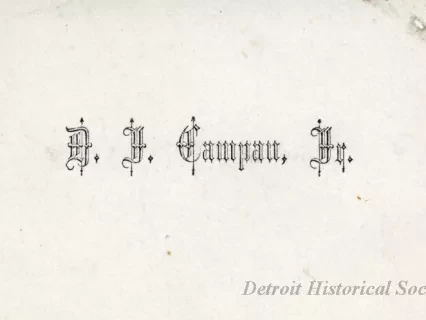 D. J. Campau, Jr.
Detroit Historical Soc